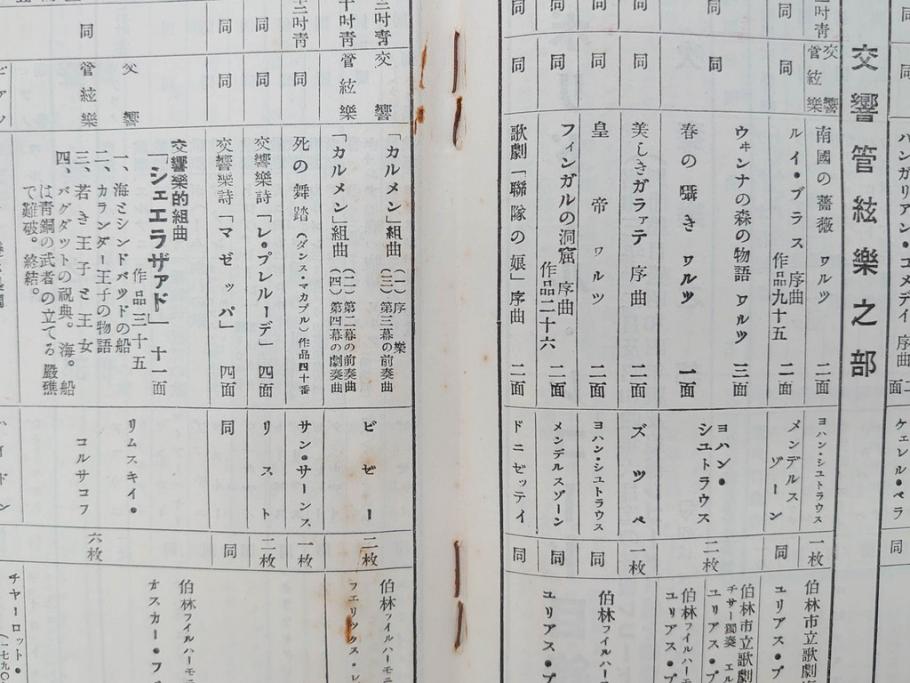 同
ハンガリアン・コメデイ 序曲 二面
ケェレル・ベラ
同
交響管絃樂之部
二吋靑
交響管絃樂
南國の薔薇 ワルツ 二面
ヨハン・シユトラウス
一枚
伯林市立歌劇
ユリアス・プ
同
同
ルイ・ブラス 序曲 作品九十五 二面
メンデルスゾーン
同
同
同
ウヰンナの森の物語 ワルツ 三面
春の囁き ワルツ 一面
ヨハン・シユトラウス
二枚
伯林市立歌劇
チサー獨奏 エル
ユリアス・プ
伯林フイルハーモ
ユリアス・
同
同
美しきガラァテ 序曲 二面
ズツペ
一枚
同
同
皇帝 ワルツ 二面
ヨハン・シユトラウス
同
伯林フイルハー
ユリアス・プ
同
同
フィンガルの洞窟 序曲。作品二十六 二面
メンデルスゾーン
同
同
同
歌劇「聯隊の娘」序曲 二面
ドニゼッテイ
同
二吋靑
十吋靑
交響
管絃樂
「カルメン」組曲 (一)序樂 (三)第三幕の前奏曲
「カルメン」組曲 (二)第二幕の前奏曲 (四)第四幕の劇奏曲
ビゼー
二枚
伯林フイルハーモ
フエリックス・レ
十二吋靑
同
死の舞踏 (ダンス・マカブル) 作品四十番
サン・サーンス
一枚
同
同
交響樂詩「レ・プレルーデ」 四面
リスト
二枚
同
同
交響樂詩「マゼッパ」 四面
同
同
同
交響
管絃樂
交響樂的組曲
「シェエラザァド」 十一面
作品三十五
一、海とシンドバツドの船
二、カランダー王子の物語
三、若き王子と王女
四、バグダットの祝典。海。船
は靑銅の武者の立てる嚴礁
で難破。終結。
リムスキイ・
コルサコフ
六枚
伯林フイルハーモニ
オスカー・フ
ピアノ
ハイドン
チヤーロット・
(一七九〇